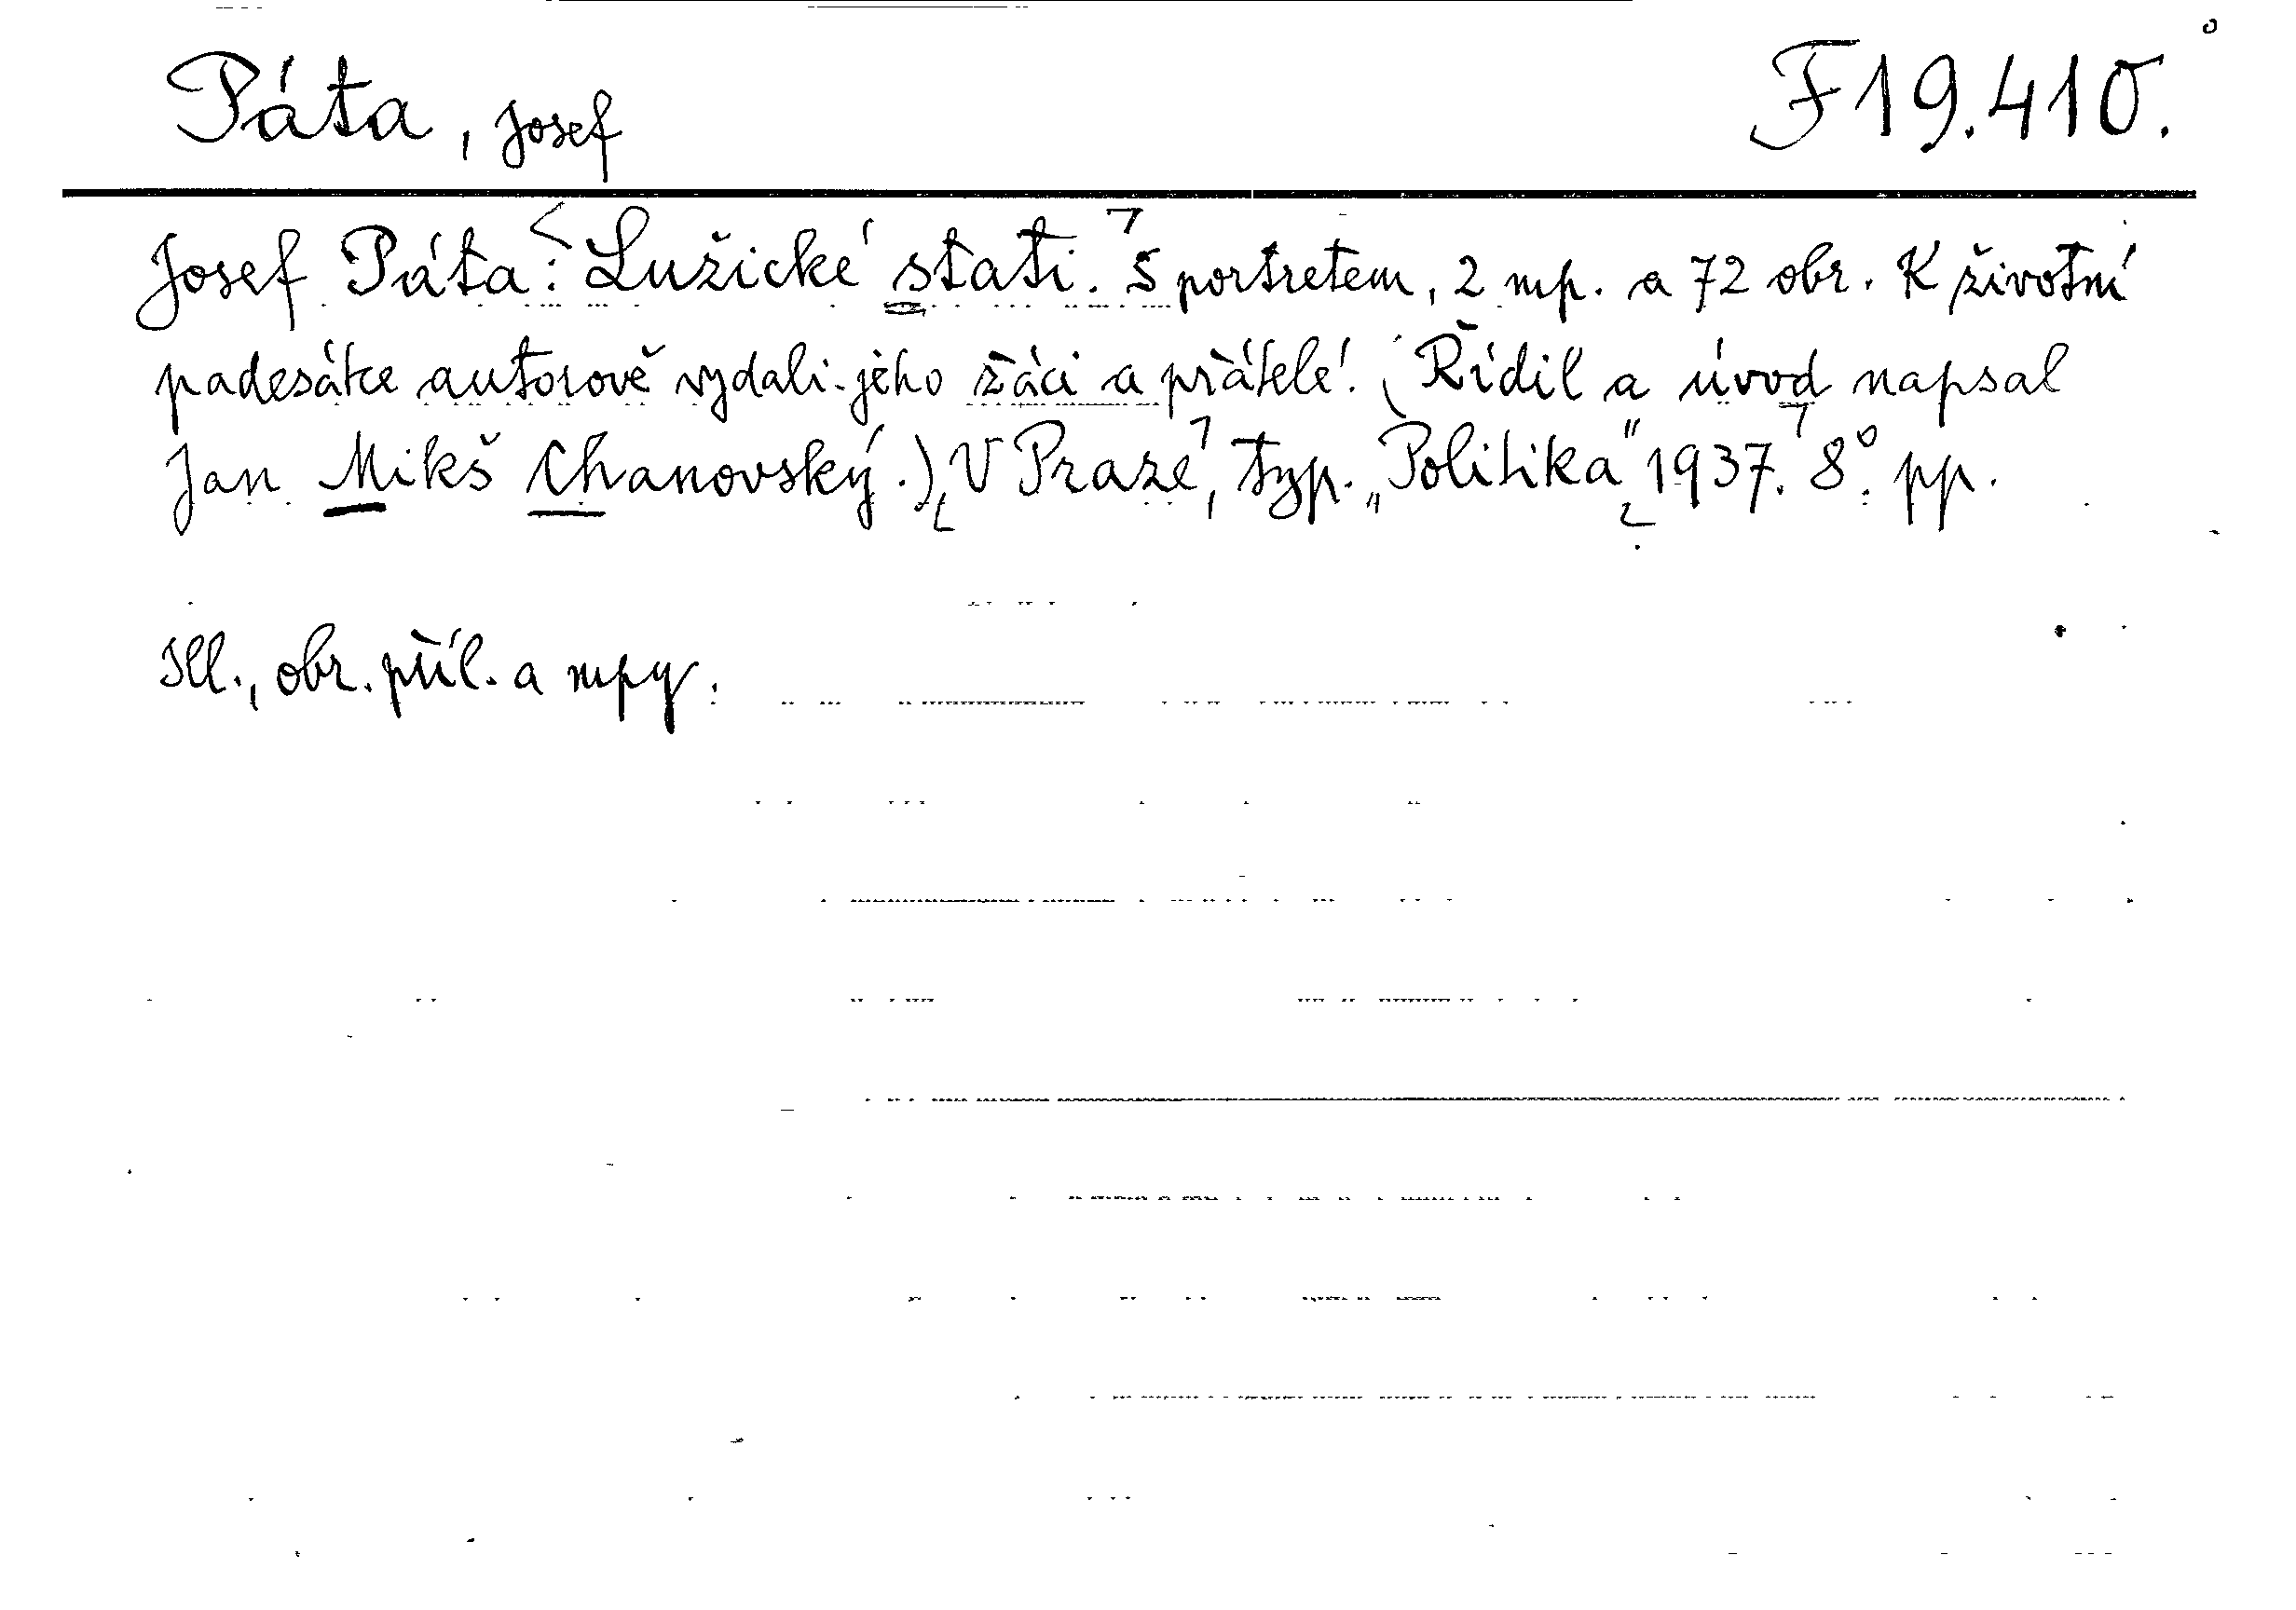 Páta, Josef F 19.410.
Josef Páta: Lužické stati. S portretem, 2 mp. a 72 obr. K životní
padesátce autorově vydali jeho žáci a přátelé. (Řídil a úvod napsal
Jan Mikš Chanovský.) V Praze, typ. „Politika" 1937. 8°. pp.
Ill., obr. příl. a mpy.